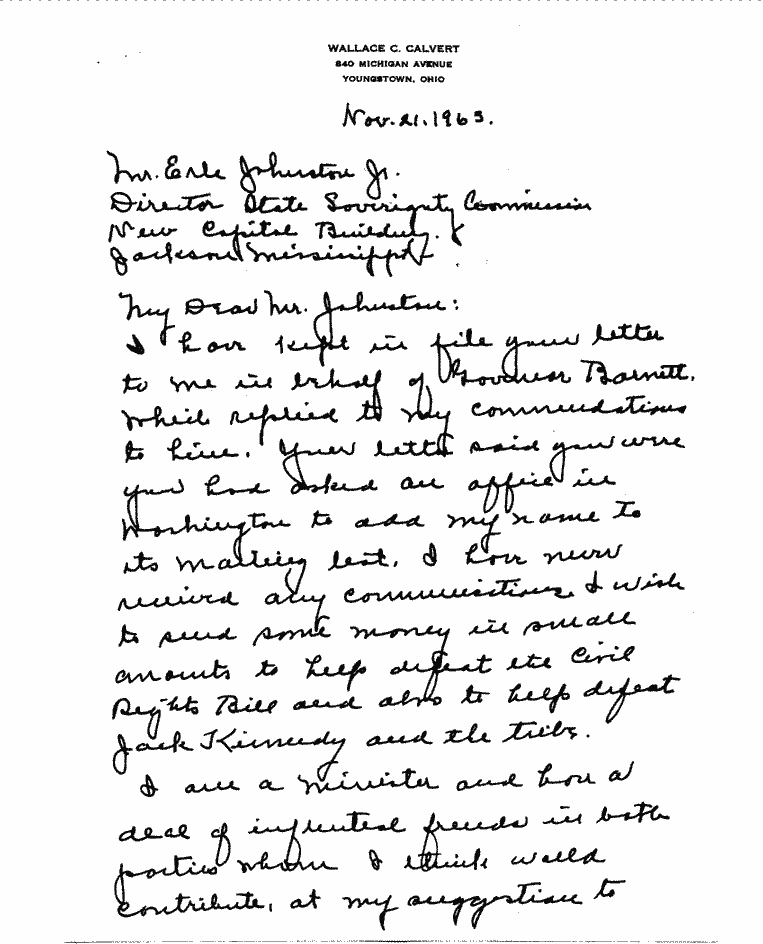 WALLACE C. CALVERT
840 MICHIGAN AVENUE
YOUNGSTOWN, OHIO
Nov. 21. 1963.
Mr. Erle Johnston Jr.
Director State Soverignty Commission
New Capitol Building.
Jackson Mississippi
My Dear Mr. Johnston:
I have kept in file your letter
to me in behalf of Governor Barnett.
which replied to my commendations
to him. Your letter said you were
you had asked an office in
Washington to add my name to
its mailing list. I have never
received any communications. I wish
to send some money in small
amounts to help defeat the Civil
Rights Bill and also to help defeat
Jack Kinnedy and the tribe.
I am a minister and have a
deal of influential friends in both
parties whom I think would
contribute, at my suggestion to